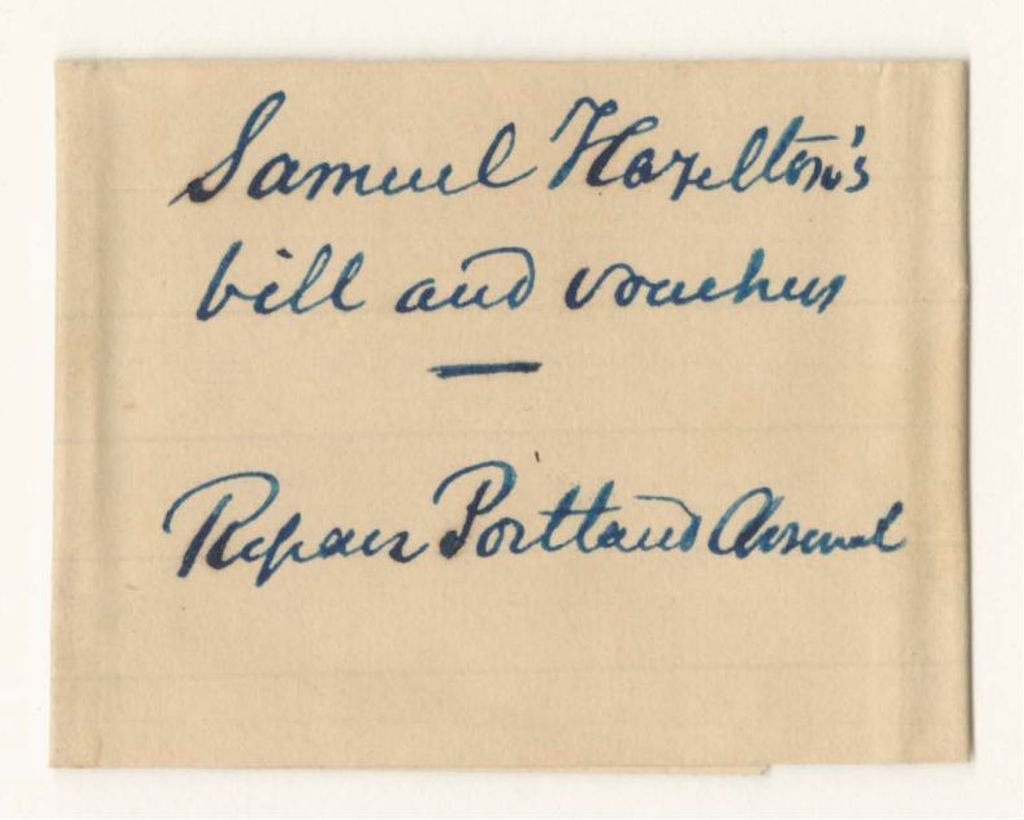 Samuel Hazelton's
bill and vouchers
Repairs Portland Arsenal